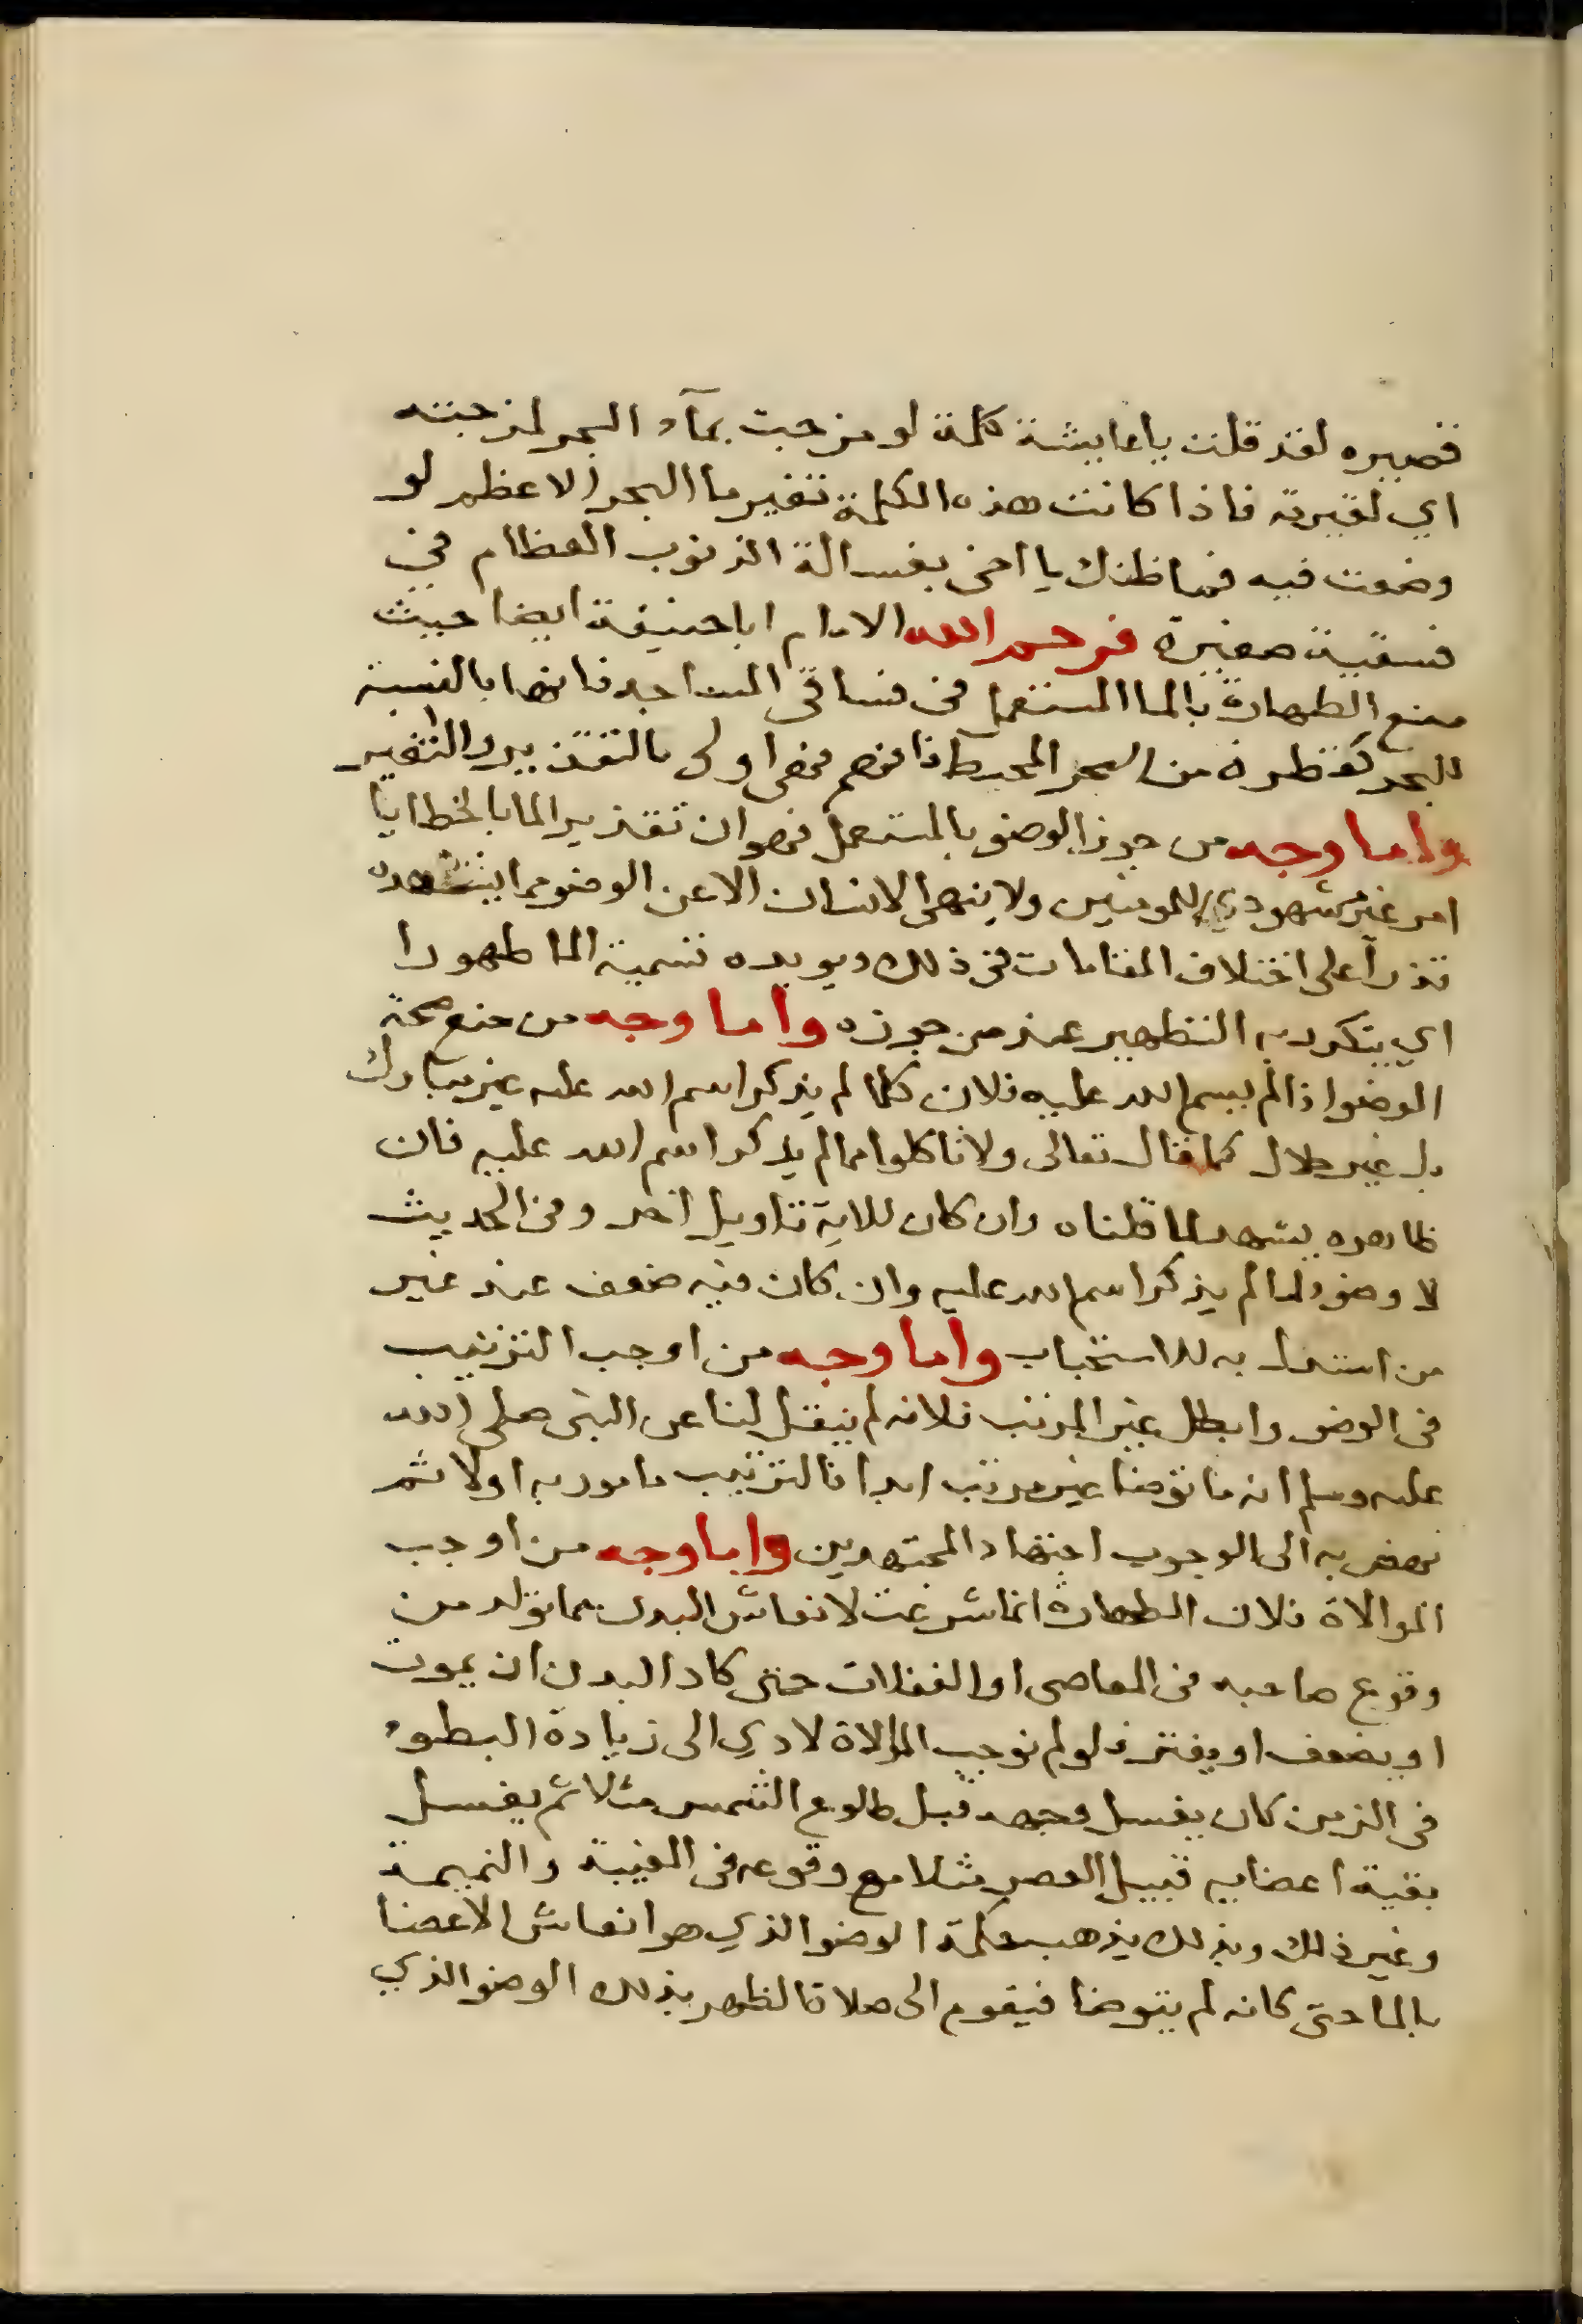 قصيره لقد قلت ياعايشة كلمة لو مزجت بمآء البحر لمزجته
اي لغيرته فاذا كانت هذه الكلمة تغير ما البحر الاعظم لو
وضعت فيه فما ظنك يا اخى بغسالة الذنوب العظام في
فسقية صغيرة فرحم الله الامام اباحنيفة ايضا حيث
منع الطهارة بالما المستعمل فى فساقى المساجد فانها بالنسبة
للبحر كقطرة من البحر المحيط فافهم فهى اولى بالتقذير والتغير
واما وجه من جوز الوضو بالمستعمل فهو ان تقذير الما بالخطايا
امر غير مشهودي للمومنين ولا ينهى الانسان الا عن الوضو مما يشهده
قذرا على اختلاف المقامات في ذلك ويويده تسمية الما طهورا
اي يتكرر به التطهير عند من جوزه واما وجه من منع صحة
الوضو اذا لم يسم الله عليه فلان كلما لم يذكر اسم الله عليه غير مبارك
بل غير حلال كما قال تعالى ولا تاكلوا مما لم يذكر اسم الله عليه فان
ظاهره يشهد لما قلناه وان كان للاية تاويل اخر وفى الحديث
لا وضو لمن لم يذكر اسم الله عليه وان كان فيه ضعف عند غير
من استدل به للاستحباب واما وجه من اوجب الترتيب
فى الوضو وابطل غير المرتب فلانه لم ينقل لنا عن النبى صلى الله
عليه وسلم انه ما توضا غير مرتب ابدا فالترتيب مامور به اولا ثم
نهض به الى الوجوب اجتهاد المجتهدين واما وجه من اوجب
الموالاة فلان الطهارة انما شرعت لانعاش البدن مما تولد من
وقوع صاحبه فى المعاصى او الغفلات حتى كاد البدن ان يموت
او يضعف او يفتر فلو لم نوجب الموالاة لادي الى زيادة البطوء
فى الزمن كان يغسل وجهه قبل طلوع الشمس مثلا ثم يغسل
بقية اعضايه قبيل العصر مثلا مع وقوعه فى الغيبة والنميمة
وغير ذلك وبذلك يذهب حكمة الوضو الذي هو انعاش الاعضا
بالما حتى كانه لم يتوضا فيقوم الى صلاة الظهر بذلك الوضو الذي